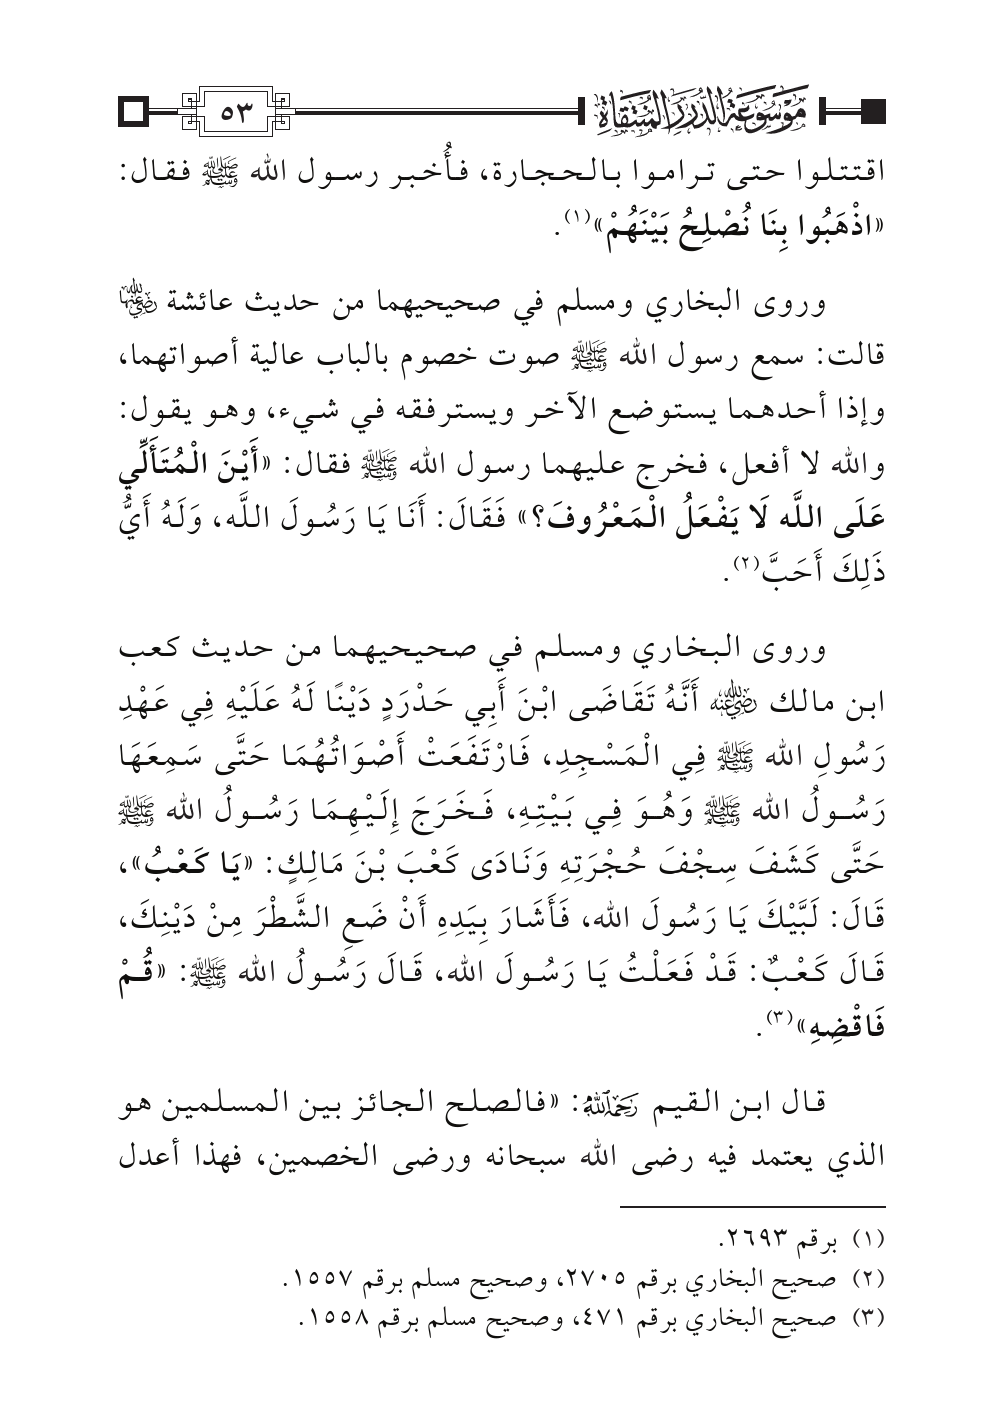 موسوعة الدرر المنتقاة
٥٣
اقتتلوا حتى تراموا بالحجارة، فأُخبر رسول الله ﷺ فقال:
«اذْهَبُوا بِنَا نُصْلِحُ بَيْنَهُمْ»(١).
وروى البخاري ومسلم في صحيحيهما من حديث عائشة رضي الله عنها
قالت: سمع رسول الله ﷺ صوت خصوم بالباب عالية أصواتهما،
وإذا أحدهما يستوضع الآخر ويسترفقه في شيء، وهو يقول:
والله لا أفعل، فخرج عليهما رسول الله ﷺ فقال: «أَيْنَ الْمُتَأَلِّي
عَلَى اللَّه لَا يَفْعَلُ الْمَعْرُوفَ؟» فَقَالَ: أَنَا يَا رَسُولَ اللَّه، وَلَهُ أَيُّ
ذَلِكَ أَحَبَّ(٢).
وروى البخاري ومسلم في صحيحيهما من حديث كعب
ابن مالك رضي الله عنه أَنَّهُ تَقَاضَى ابْنَ أَبِي حَدْرَدٍ دَيْنًا لَهُ عَلَيْهِ فِي عَهْدِ
رَسُولِ الله ﷺ فِي الْمَسْجِدِ، فَارْتَفَعَتْ أَصْوَاتُهُمَا حَتَّى سَمِعَهَا
رَسُولُ الله ﷺ وَهُوَ فِي بَيْتِهِ، فَخَرَجَ إِلَيْهِمَا رَسُولُ الله ﷺ
حَتَّى كَشَفَ سِجْفَ حُجْرَتِهِ وَنَادَى كَعْبَ بْنَ مَالِكٍ: «يَا كَعْبُ»،
قَالَ: لَبَّيْكَ يَا رَسُولَ الله، فَأَشَارَ بِيَدِهِ أَنْ ضَعِ الشَّطْرَ مِنْ دَيْنِكَ،
قَالَ كَعْبٌ: قَدْ فَعَلْتُ يَا رَسُولَ الله، قَالَ رَسُولُ الله ﷺ: «قُمْ
فَاقْضِهِ»(٣).
قال ابن القيم رحمه الله: «فالصلح الجائز بين المسلمين هو
الذي يعتمد فيه رضى الله سبحانه ورضى الخصمين، فهذا أعدل
(١) برقم ٢٦٩٣.
(٢) صحيح البخاري برقم ٢٧٠٥، وصحيح مسلم برقم ١٥٥٧.
(٣) صحيح البخاري برقم ٤٧١، وصحيح مسلم برقم ١٥٥٨.